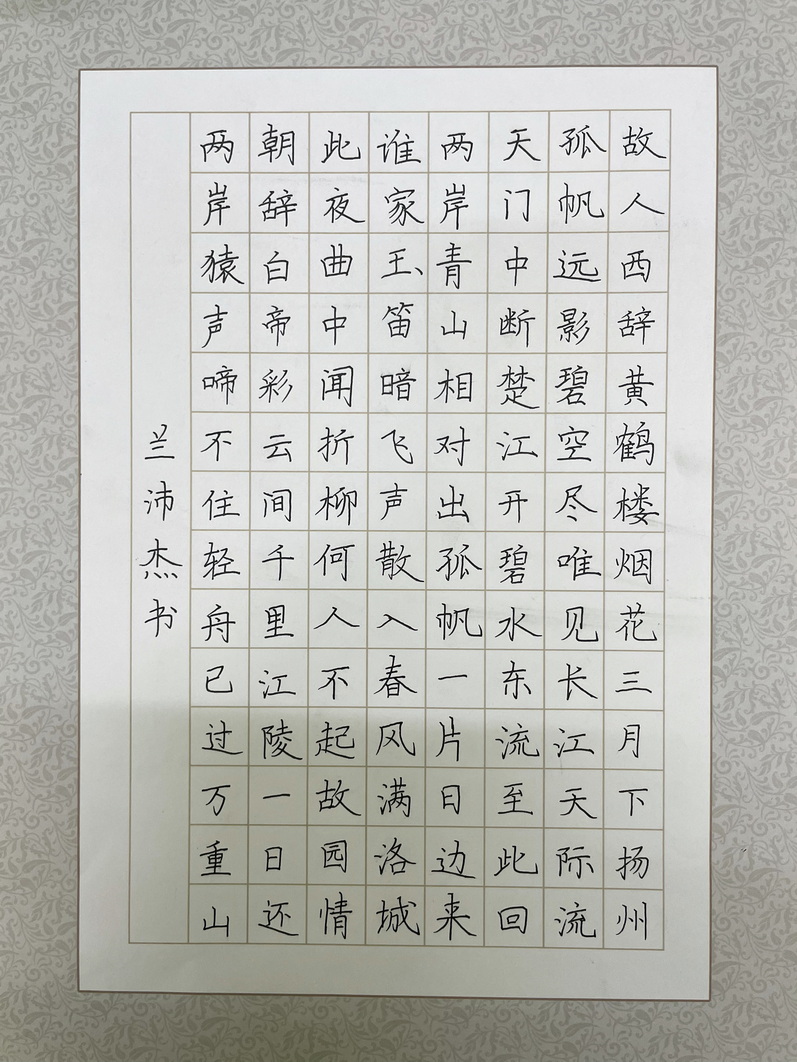 故人西辞黄鹤楼烟花三月下扬州
孤帆远影碧空尽唯见长江天际流
天门中断楚江开碧水东流至此回
两岸青山相对出孤帆一片日边来
谁家玉笛暗飞声散入春风满洛城
此夜曲中闻折柳何人不起故园情
朝辞白帝彩云间千里江陵一日还
两岸猿声啼不住轻舟已过万重山
兰沛杰书